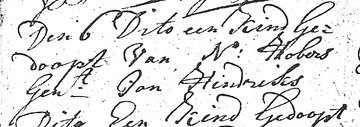 Den 6 Dito een Kind Ge=
doopt Van N: Kobers
Gen:t Jan Hendriks
Dito Een Kind Gedoopt